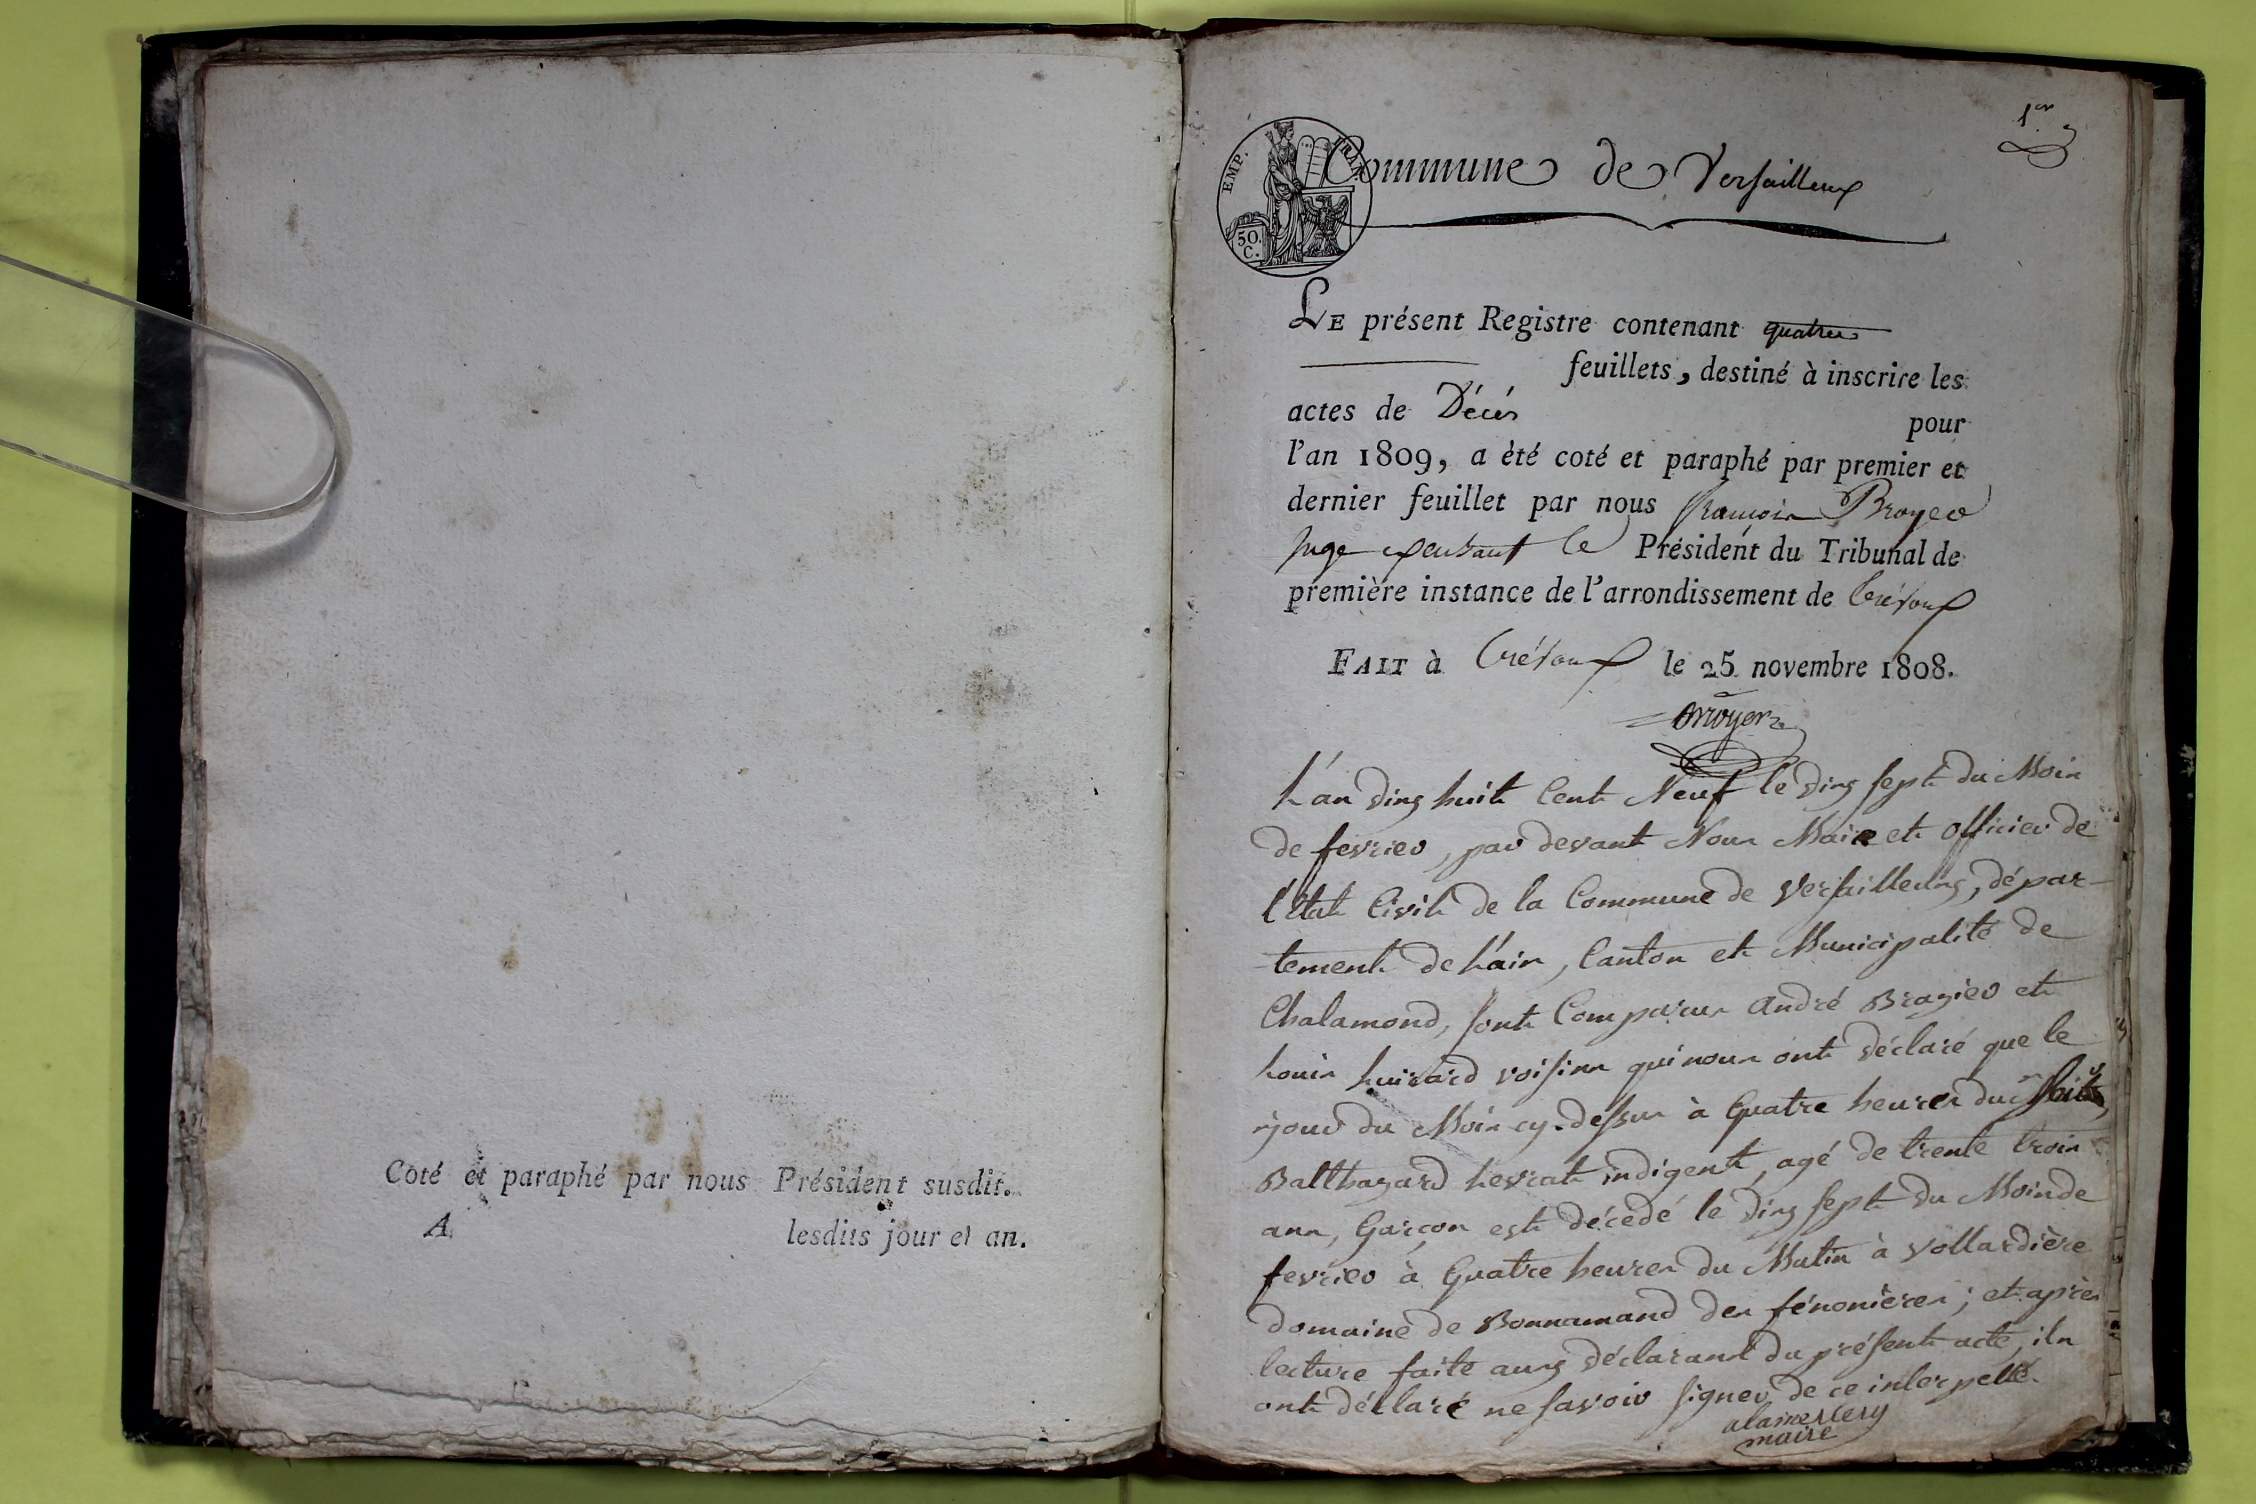 Coté et paraphé par nous Président susdit.
A lesdits jour et an.
1er
EMP. FRAN.
50.
C.
Commune de Versailleux
LE présent Registre contenant quatre
feuillets, destiné à inscrire les
actes de Décès pour
l'an 1809, a èté coté et paraphé par premier et
dernier feuillet par nous françois Broyer
Juge le Président du Tribunal de
première instance de l'arrondissement de Trévoux
FAIT à Trévoux le 25 novembre 1808.
L'an dix huit Cent Neuf le dix sept du Mois
de fevrier, par devant Nous Maire et officier de
l'état Civil de la Commune de Versailleux, dépar-
tement de L'ain, Canton et Municipalité de
Chalamond, sont Comparus André Brazier et
Louis huirard voisins qui nous ont déclaré que le
jour du Mois cy-dessus à Quatre heures du
Balthazard hevrat indigent, agé de trente trois
ans, Garçon est décedé le dix sept du Mois de
fevrier à Quatre heures du Matin à Vollardière
domaine de Bonnamand des fénonières; et après
lecture faite aux déclarant du présent acte, ils
ont déclaré ne savoir signer de ce interpellé.
maire